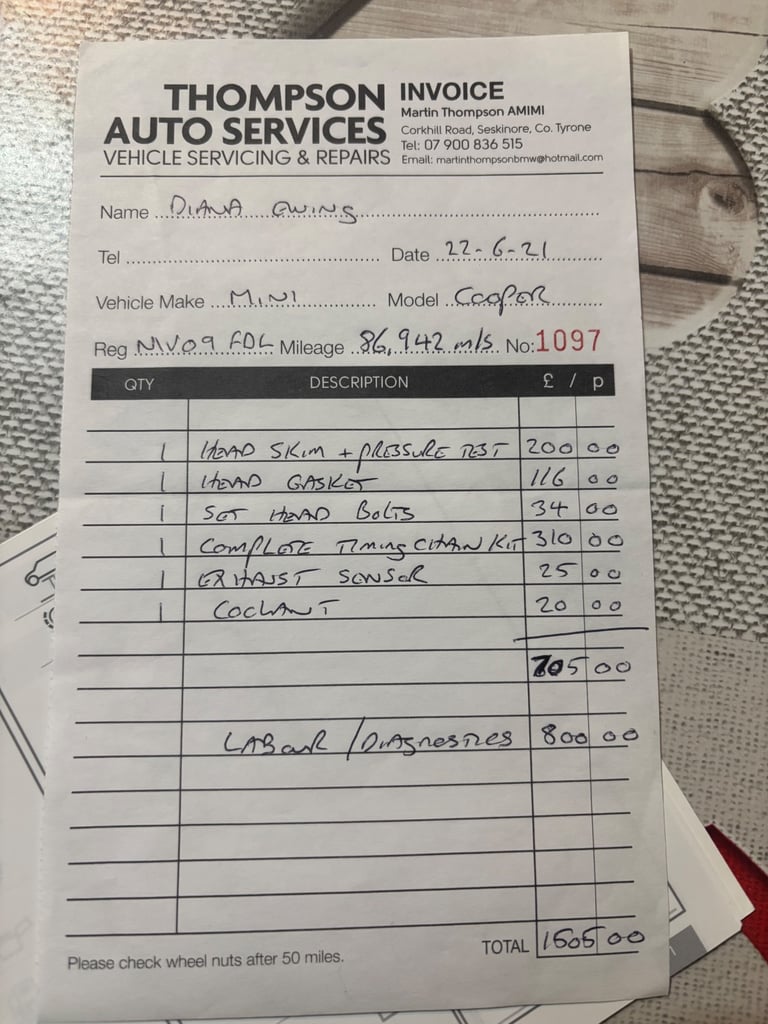 THOMPSON
AUTO SERVICES
VEHICLE SERVICING & REPAIRS
INVOICE
Martin Thompson AMIMI
Corkhill Road, Seskinore, Co. Tyrone
Tel: 07 900 836 515
Email: martinthompsonbmw@hotmail.com
Name DIANA EWING
Tel Date 22-6-21
Vehicle Make MINI Model COOPER
Reg NV09 FDL Mileage 86,942 m/s No:1097
QTY DESCRIPTION £ / p
1 HEAD SKIM + PRESSURE TEST 200 00
1 HEAD GASKET 116 00
1 SET HEAD BOLTS 34 00
1 COMPLETE TIMING CHAIN KIT 310 00
1 EXHAUST SENSOR 25 00
1 COOLANT 20 00
705 00
LABOUR / DIAGNOSTICS 800 00
Please check wheel nuts after 50 miles.
TOTAL 1505 00